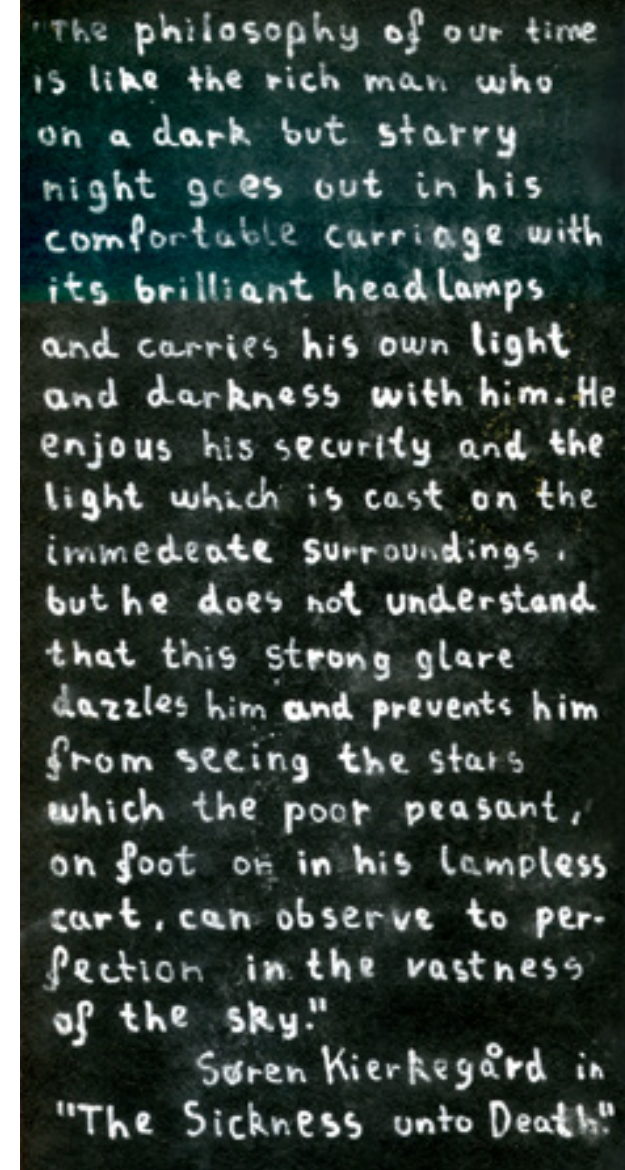 "The philosophy of our time
is like the rich man who
on a dark but starry
night goes out in his
comfortable carriage with
its brilliant headlamps
and carries his own light
and darkness with him. He
enjous his security and the
light which is cast on the
immedeate surroundings,
but he does not understand
that this strong glare
dazzles him and prevents him
from seeing the stars
which the poor peasant,
on foot or in his lampless
cart, can observe to per-
fection in the vastness
of the sky."
Søren Kierkegård in
"The Sickness unto Death."